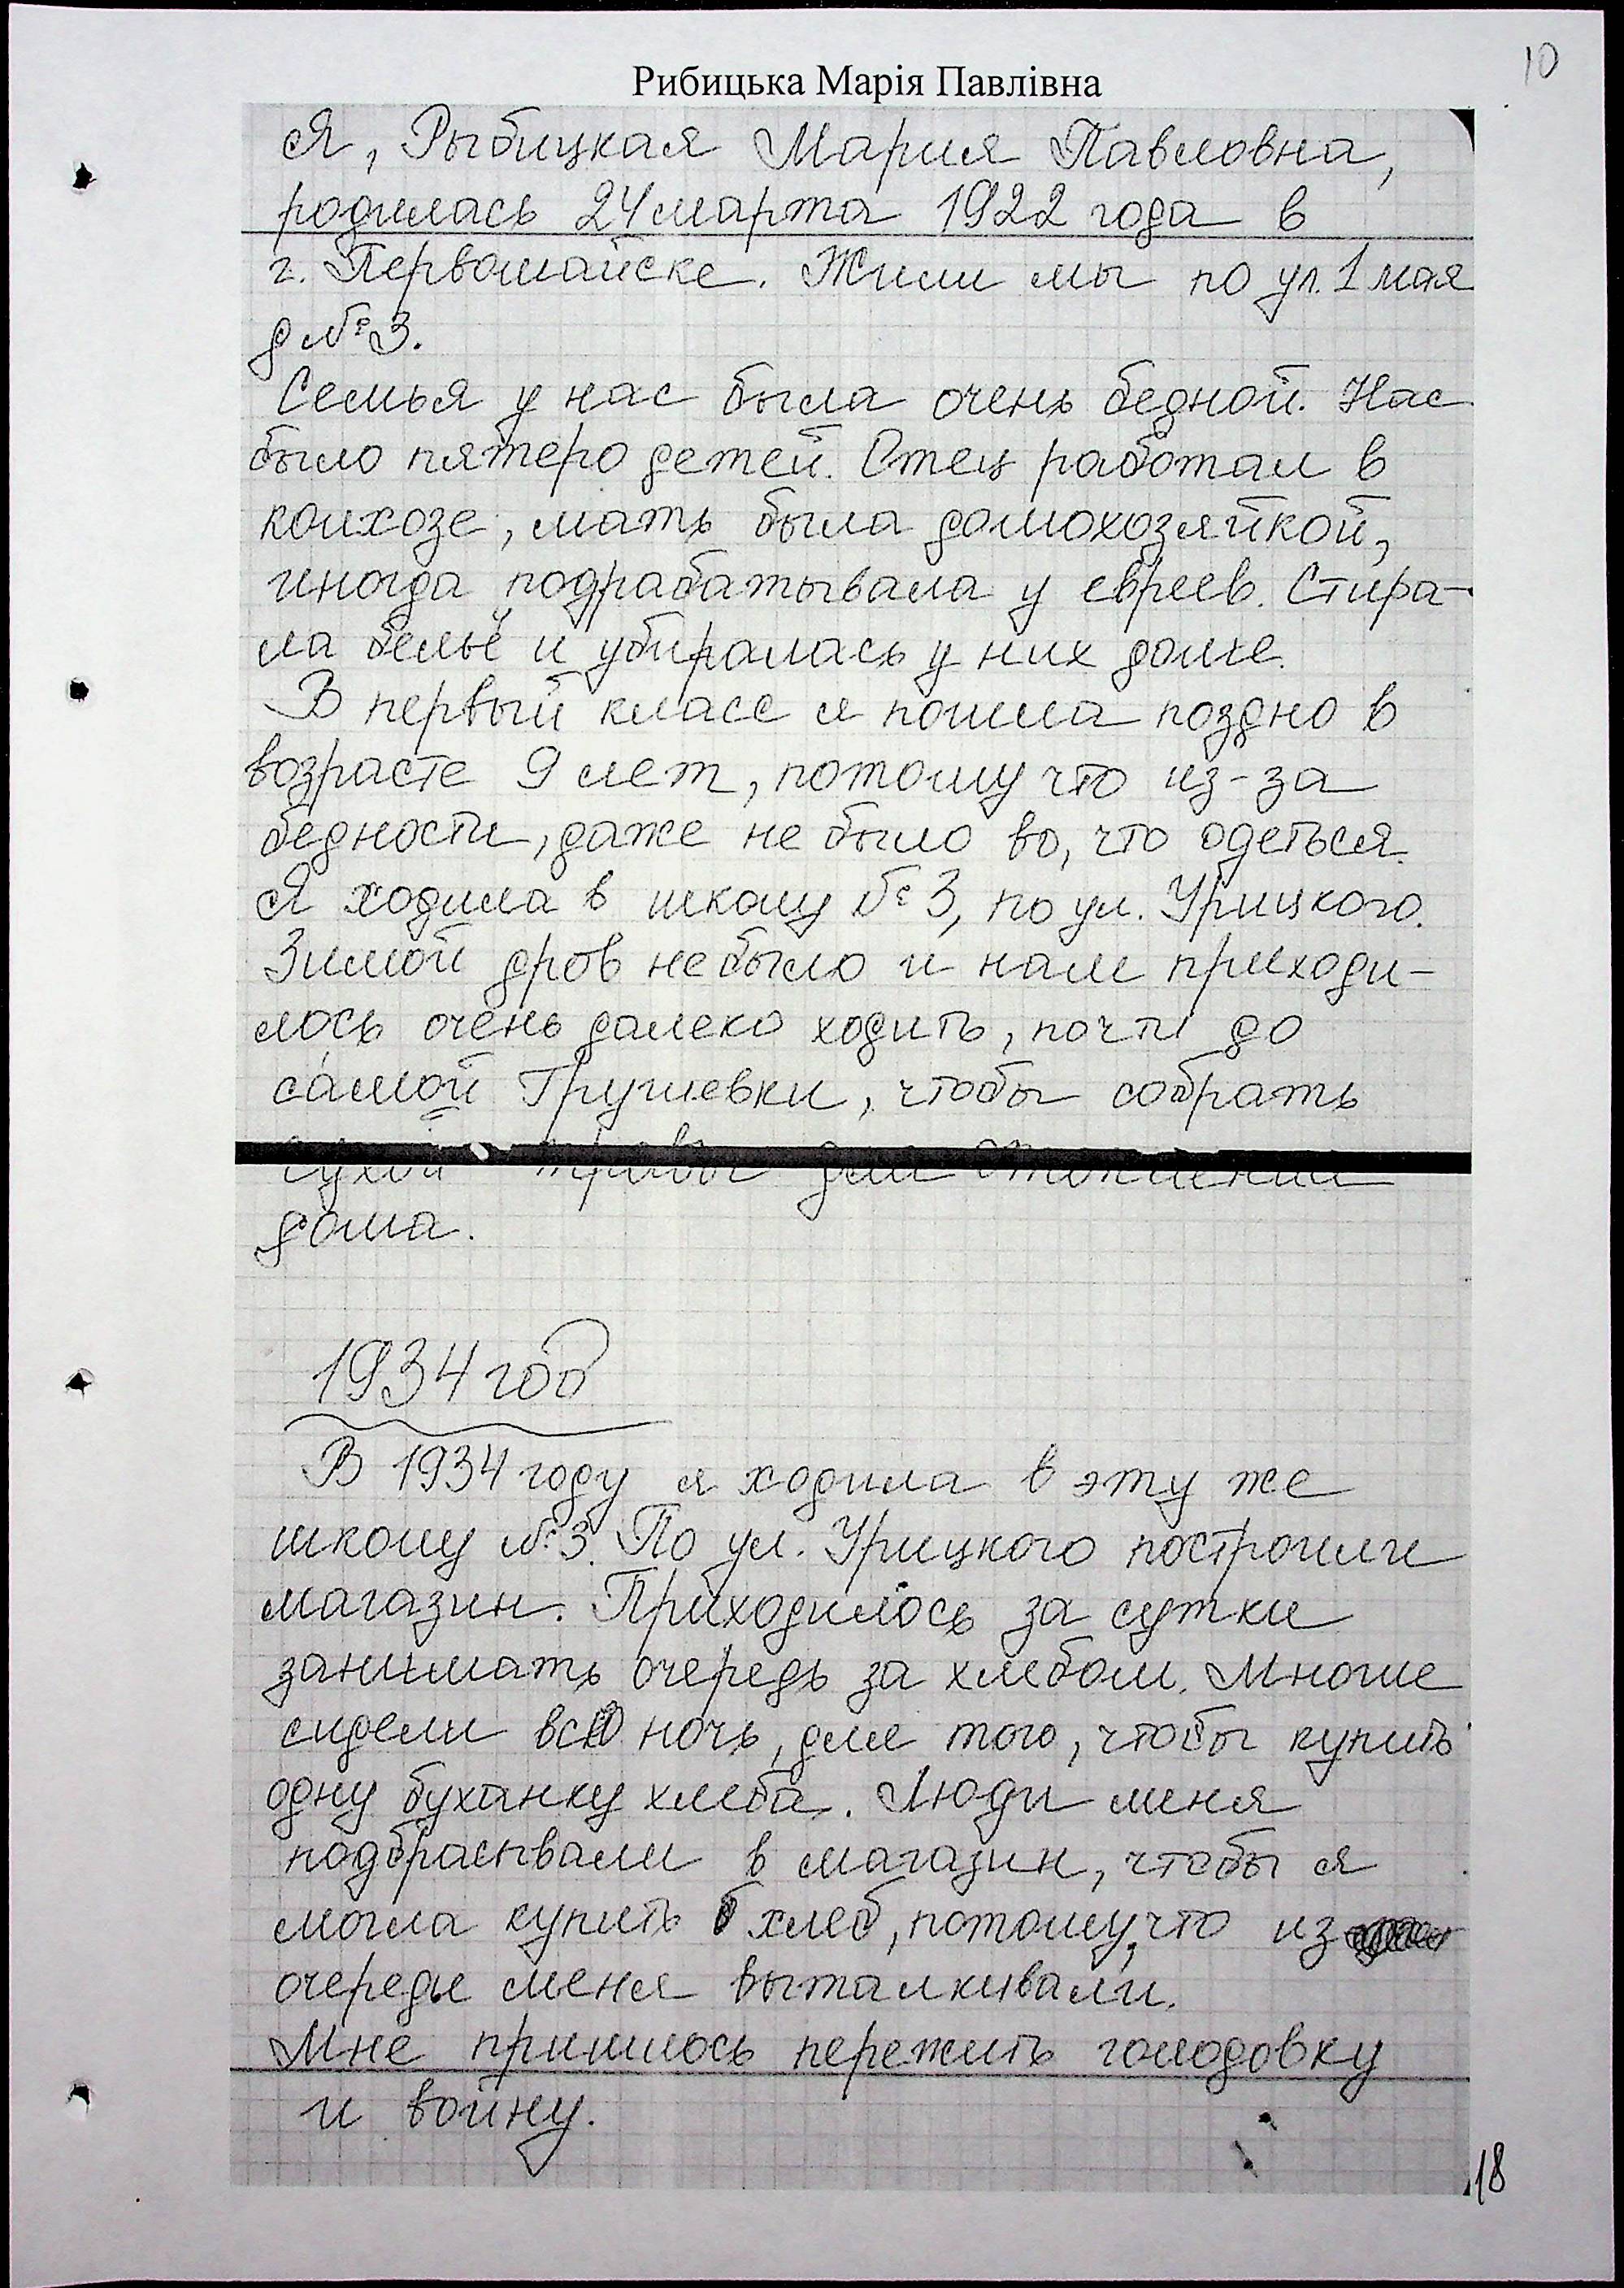 10
Рибицька Марія Павлівна
Я, Рыбицкая Мария Павловна,
родилась 24 марта 1922 года в
г. Первомайске. Жили мы по ул. 1 мая
д №3.
Семья у нас была очень бедной. Нас
было пятеро детей. Отец работал в
колхозе, мать была домохозяйкой,
иногда подрабатывала у евреев. Стира-
ла бельё и убиралась у них доме.
В первый класс я пошла поздно в
возрасте 9 лет, потому что из-за
бедности, даже не было во, что одеться.
Я ходила в школу №3, по ул. Урицкого.
Зимой дров не было и нам приходи-
лось очень далеко ходить, почти до
самой Грушевки, чтобы собрать
сухой травы для отопления
дома.
1934 год
В 1934 году я ходила в эту же
школу №3. По ул. Урицкого построили
магазин. Приходилось за сутки
занимать очередь за хлебом. Многие
сидели всю ночь, для того, чтобы купить
одну буханку хлеба. Люди меня
подбрасывали в магазин, чтобы я
могла купить хлеб, потому, что из
очереди меня выталкивали.
Мне пришлось пережить голодовку
и войну.
18